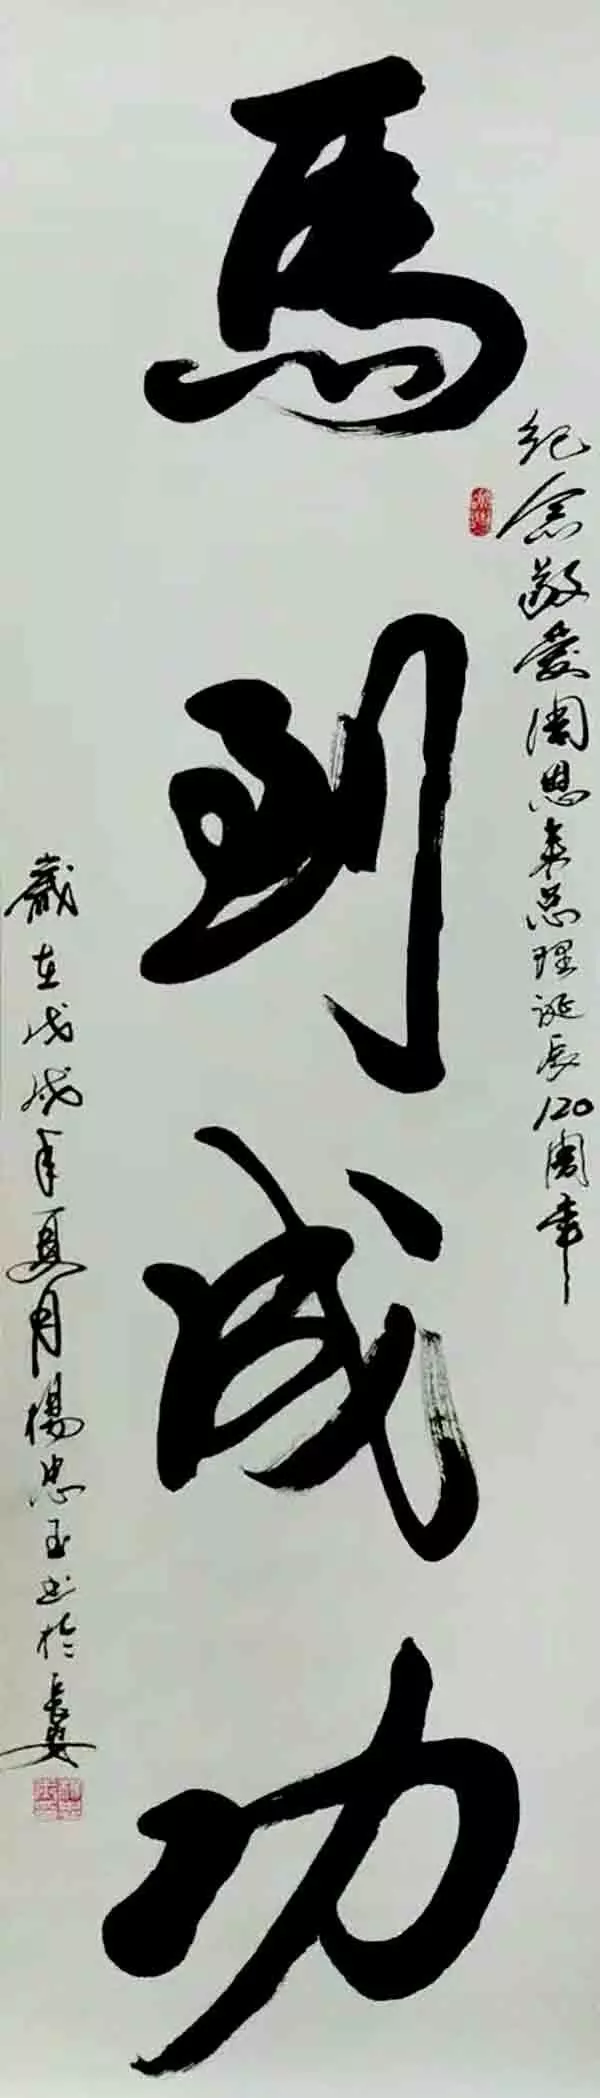 纪念敬爱周恩来总理诞辰120周年
馬到成功
歲在戊戌年夏月楊忠玉书於長安